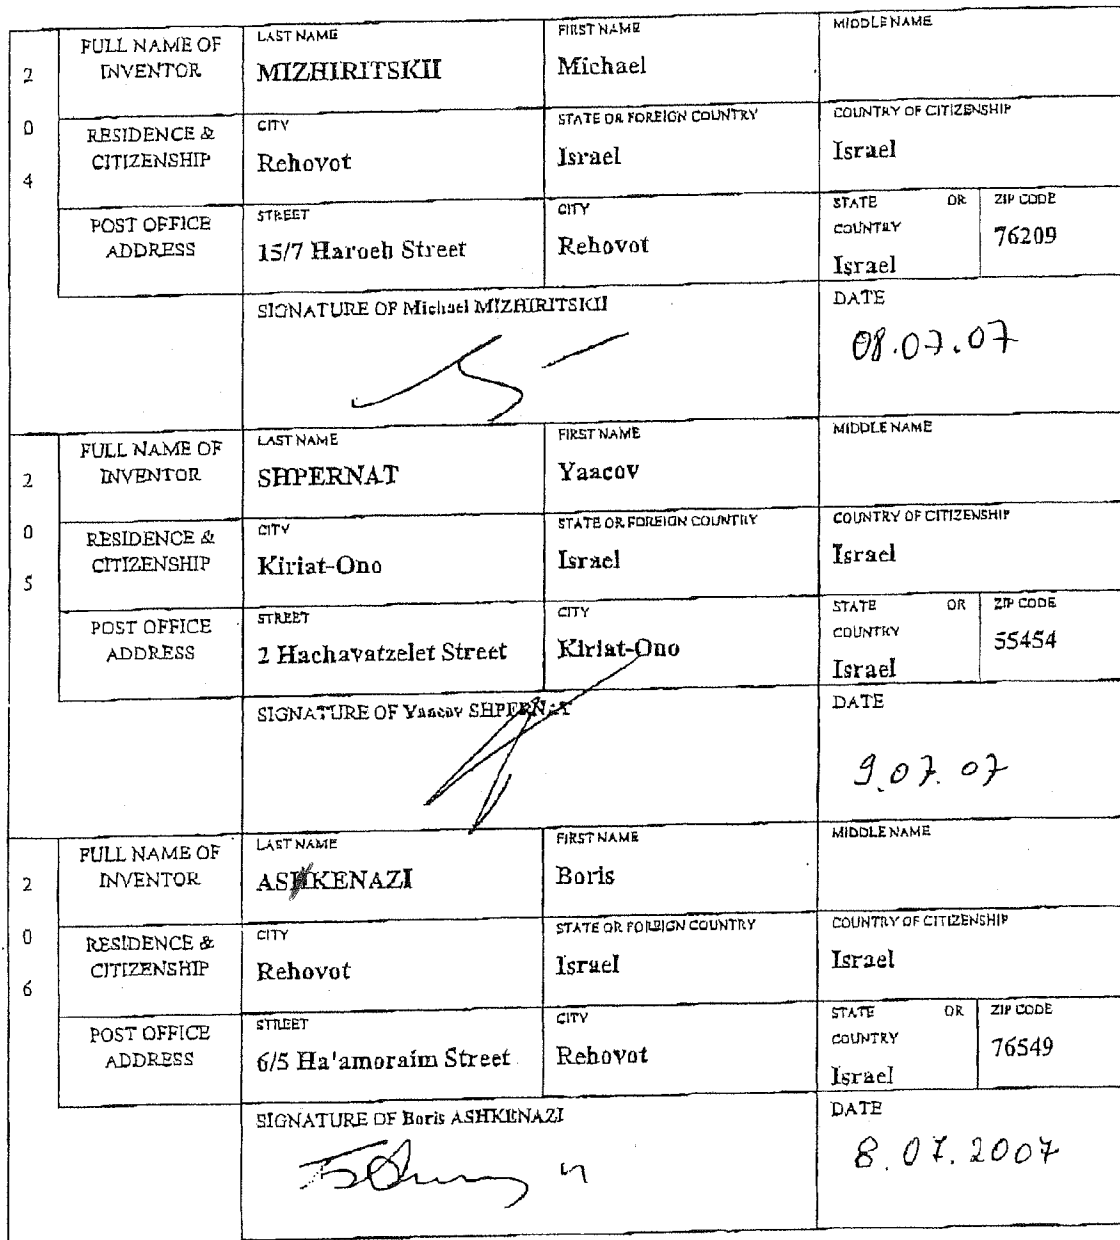 2
0
4
FULL NAME OF INVENTOR
LAST NAME
MIZHIRITSKII
FIRST NAME
Michael
MIDDLE NAME
RESIDENCE & CITIZENSHIP
CITY
Rehovot
STATE OR FOREIGN COUNTRY
Israel
COUNTRY OF CITIZENSHIP
Israel
POST OFFICE ADDRESS
STREET
15/7 Haroeh Street
CITY
Rehovot
STATE OR COUNTRY
Israel
ZIP CODE
76209
SIGNATURE OF Michael MIZHIRITSKII
DATE
08.07.07
2
0
5
FULL NAME OF INVENTOR
LAST NAME
SHPERNAT
FIRST NAME
Yaacov
MIDDLE NAME
RESIDENCE & CITIZENSHIP
CITY
Kiriat-Ono
STATE OR FOREIGN COUNTRY
Israel
COUNTRY OF CITIZENSHIP
Israel
POST OFFICE ADDRESS
STREET
2 Hachavatzelet Street
CITY
Kiriat-Ono
STATE OR COUNTRY
Israel
ZIP CODE
55454
SIGNATURE OF Yaacov SHPERNAT
DATE
9.07.07
2
0
6
FULL NAME OF INVENTOR
LAST NAME
ASHKENAZI
FIRST NAME
Boris
MIDDLE NAME
RESIDENCE & CITIZENSHIP
CITY
Rehovot
STATE OR FOREIGN COUNTRY
Israel
COUNTRY OF CITIZENSHIP
Israel
POST OFFICE ADDRESS
STREET
6/5 Ha'amoraim Street
CITY
Rehovot
STATE OR COUNTRY
Israel
ZIP CODE
76549
SIGNATURE OF Boris ASHKENAZI
DATE
8.07.2007